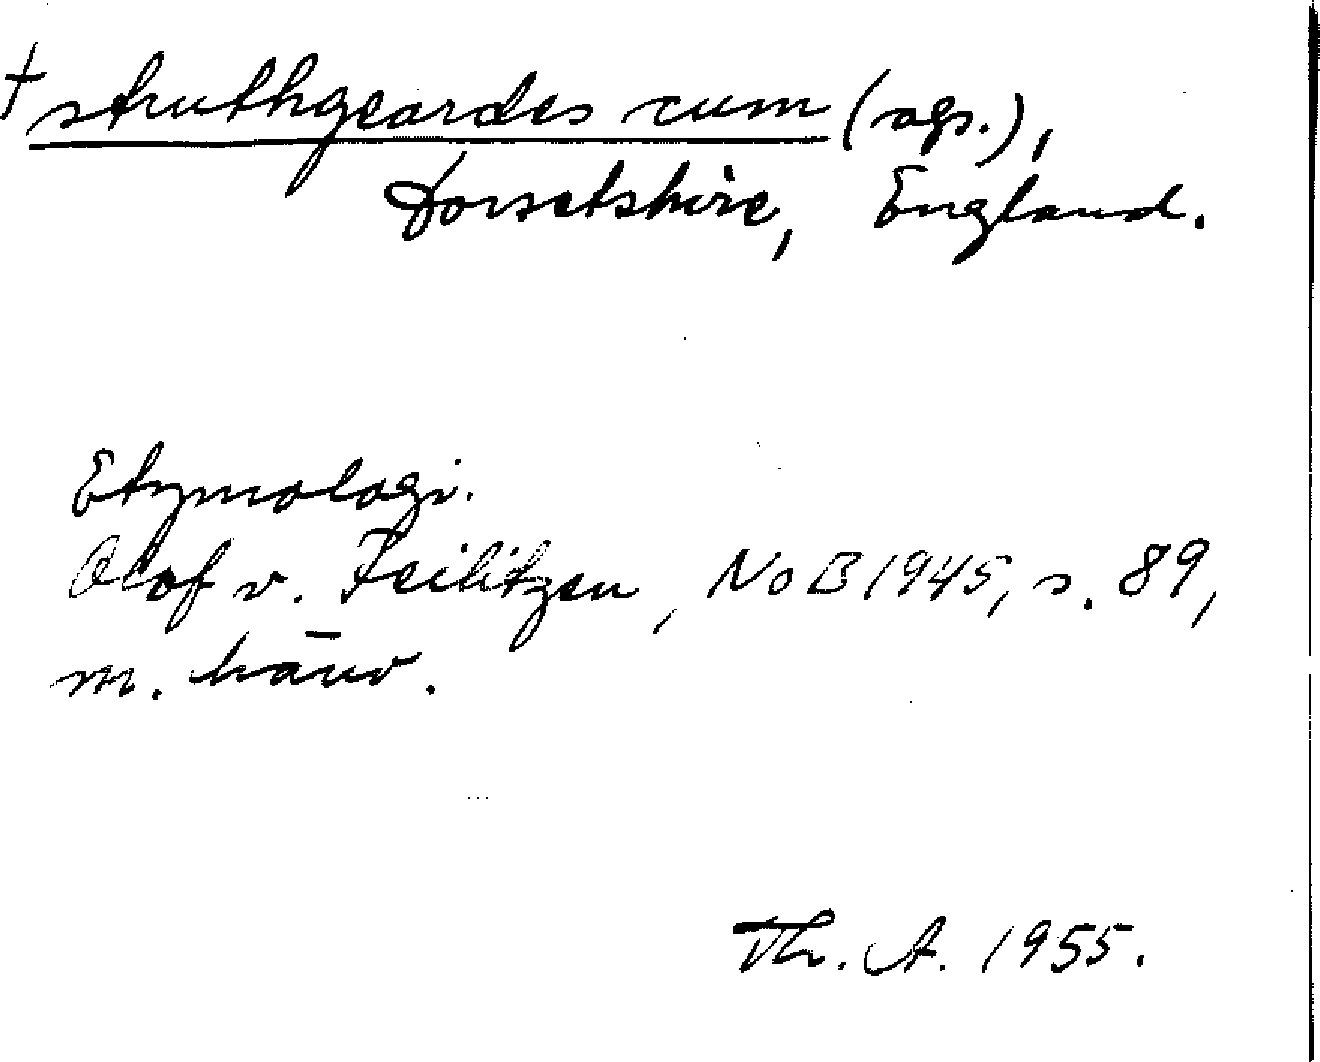 † struthgeardes cum (ags.),
Dorsetshire, England.
Etymologi.
Olof v. Feilitzen, NoB 1945, s. 89,
m. hänv.
Th. A. 1955.